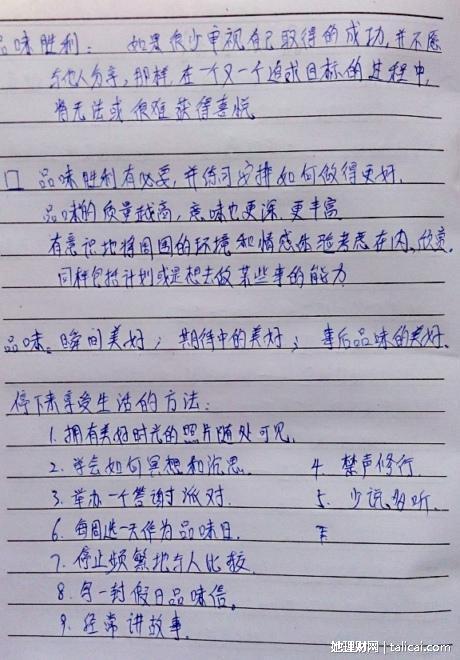 品味胜利： 如果很少审视自己取得的成功，并不愿
与他人分享，那样，在一个又一个追求目标的过程中，
将无法或很难获得喜悦
口 品味胜利有必要，并练习安排如何做得更好.
品味的质量越高，意味也更深，更丰富
有意识地将周围的环境和情感体验考虑在内，欣赏.
同样包括计划或是想去做某些事的能力
品味。瞬间美好； 期待中的美好； 事后品味的美好.
停下来享受生活的方法：
1. 拥有美好时光的照片随处可见.
2. 学会如何冥想和沉思. 4. 禁声修行.
3. 举办一个答谢派对. 5. 少说多听.
6. 每周选一天作为品味日.
7. 停止频繁地与人比较.
8. 写一封假日品味信.
9. 经常讲故事.
地理财网 | talicai.com